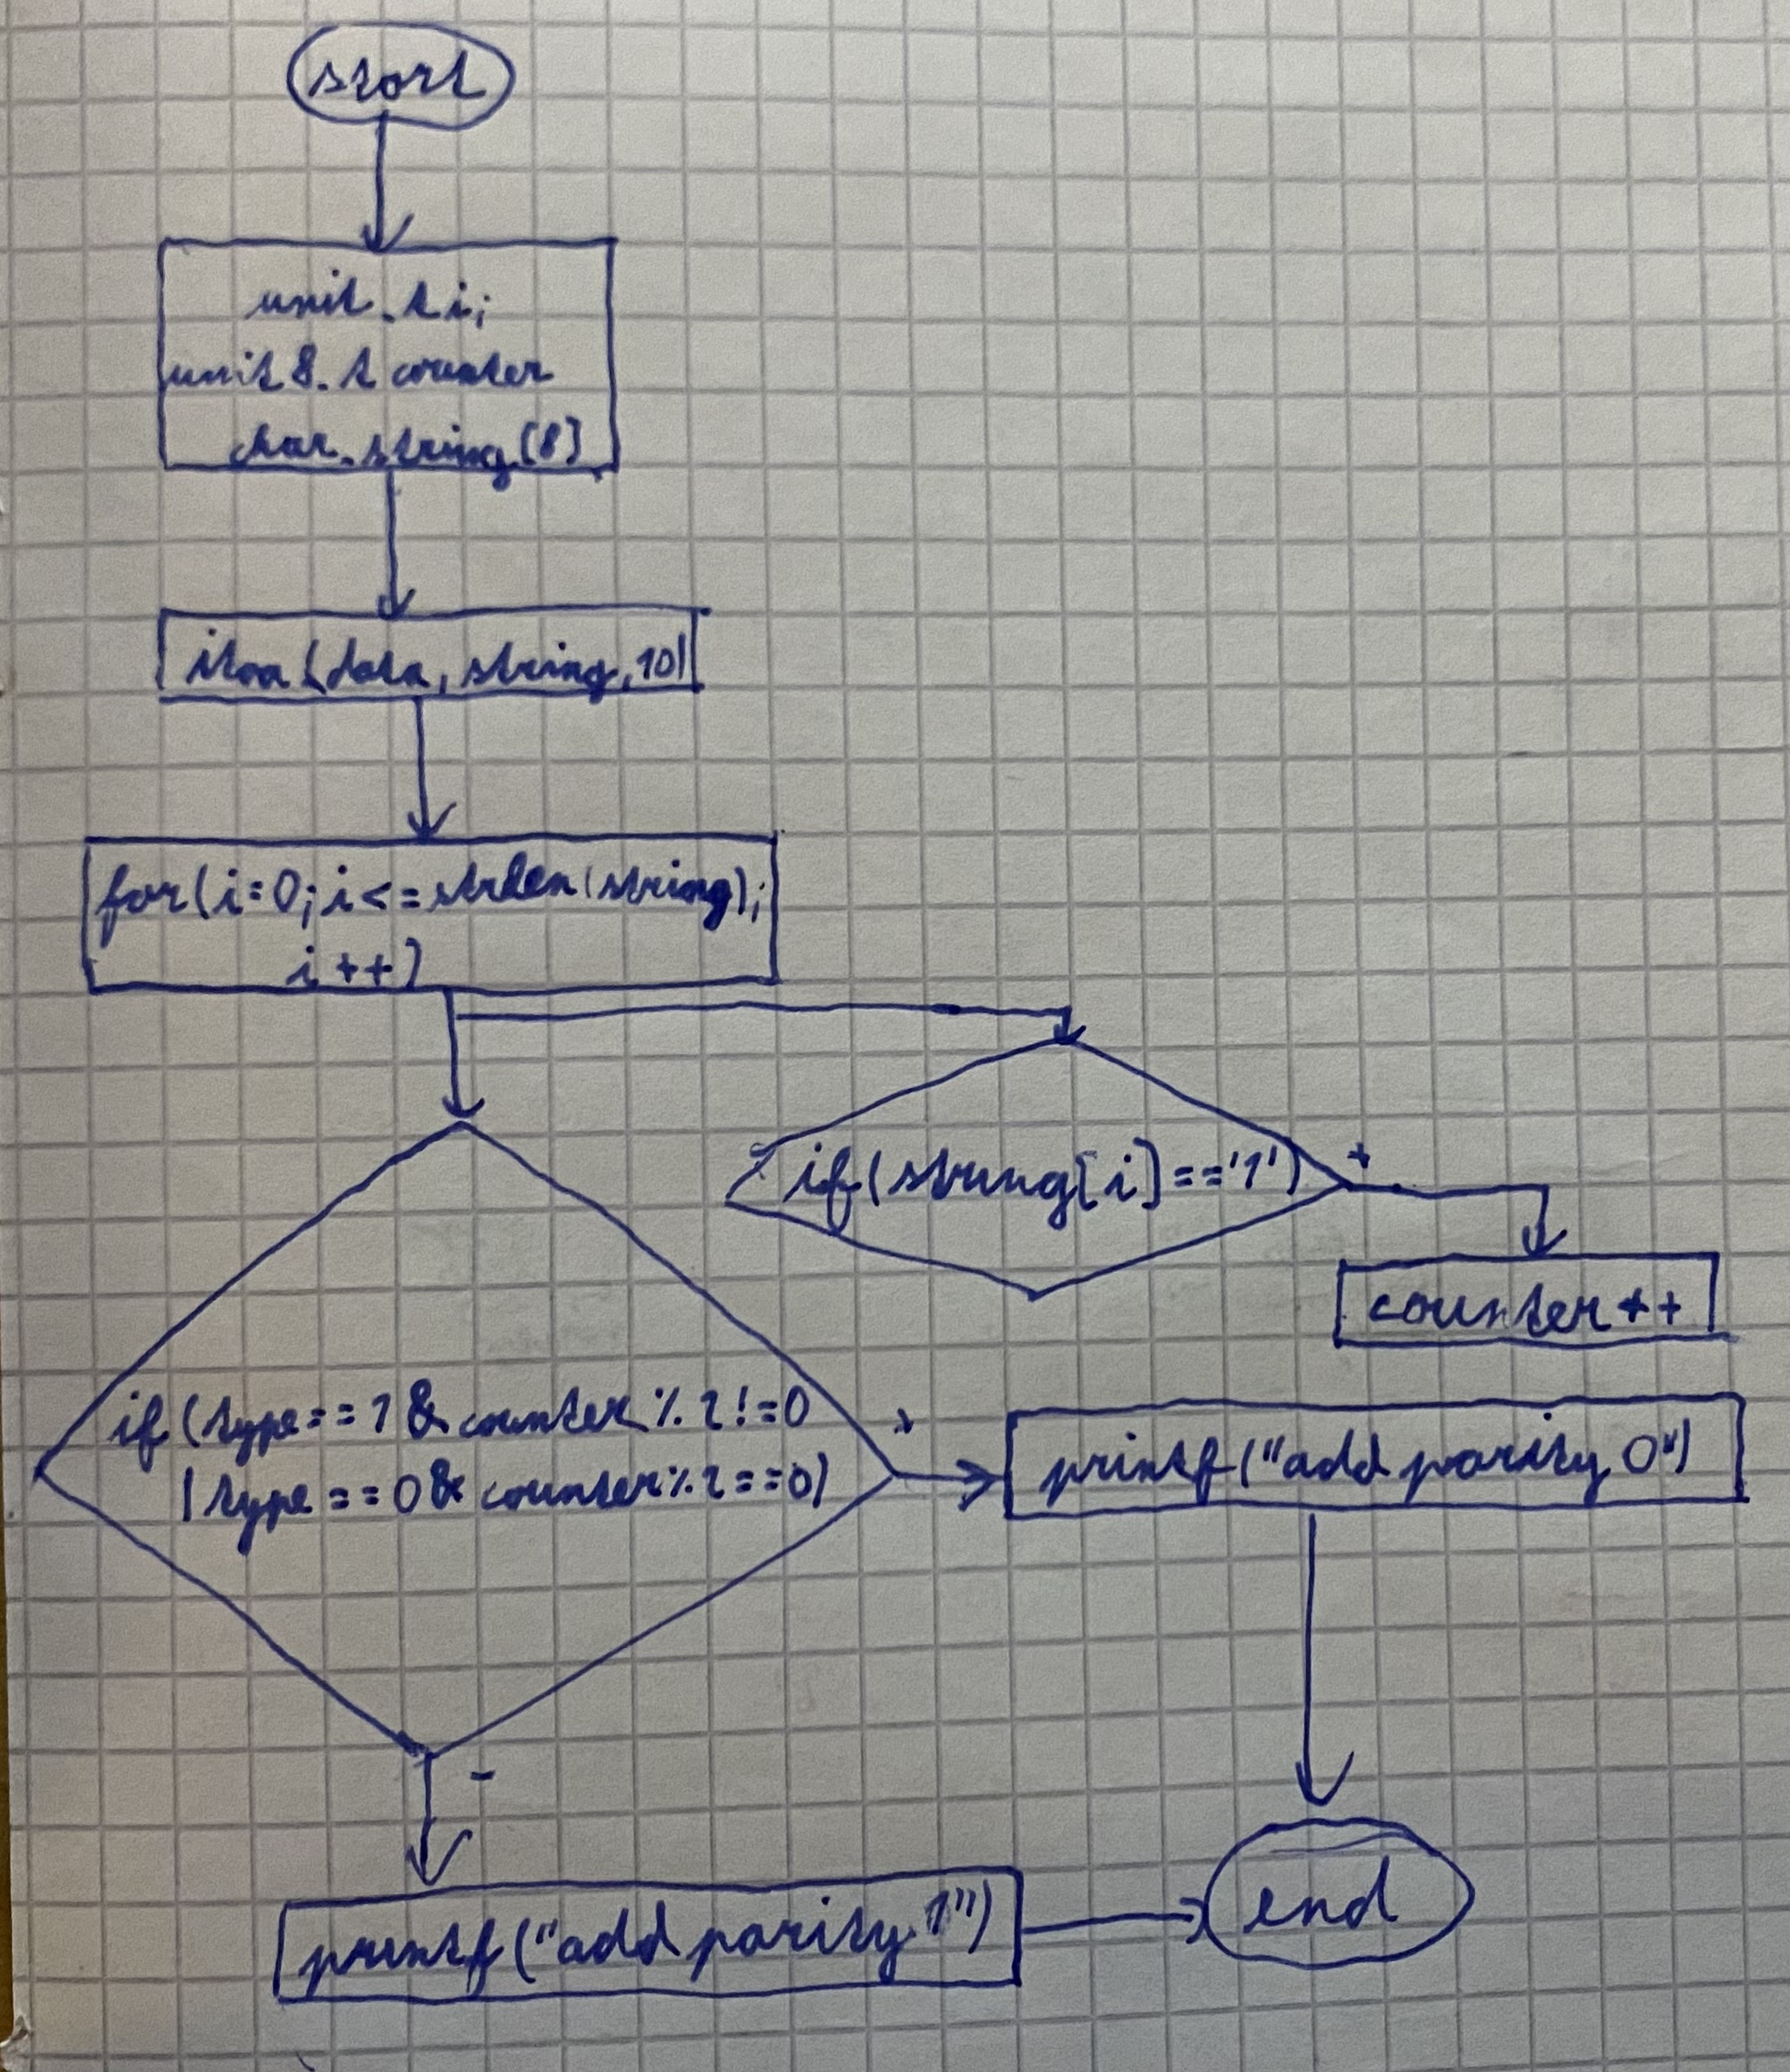 start
unit_t i;
unit8_t counter
char_string[8]
itoa(data, string, 10)
for(i=0; i<=strlen(string);
i++)
if(string[i]=='1')
+
counter++
if(type==1 & counter%2!=0
| type==0 & counter%2==0)
+
printf("add parity 0")
-
printf("add parity 1")
end